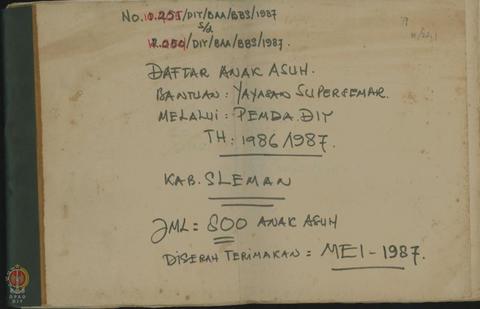 No. 0.251/DIY/BAA/BBS/1987
s/d
R.050/DIY/BAA/BBS/1987.
DAFTAR ANAK ASUH.
BANTUAN: YAYASAN SUPERSEMAR.
MELALUI: PEMDA DIY
TH: 1986/1987.
KAB. SLEMAN
JML = 800 ANAK ASUH
DISERAH TERIMAKAN = MEI - 1987.
DPAD
DIY